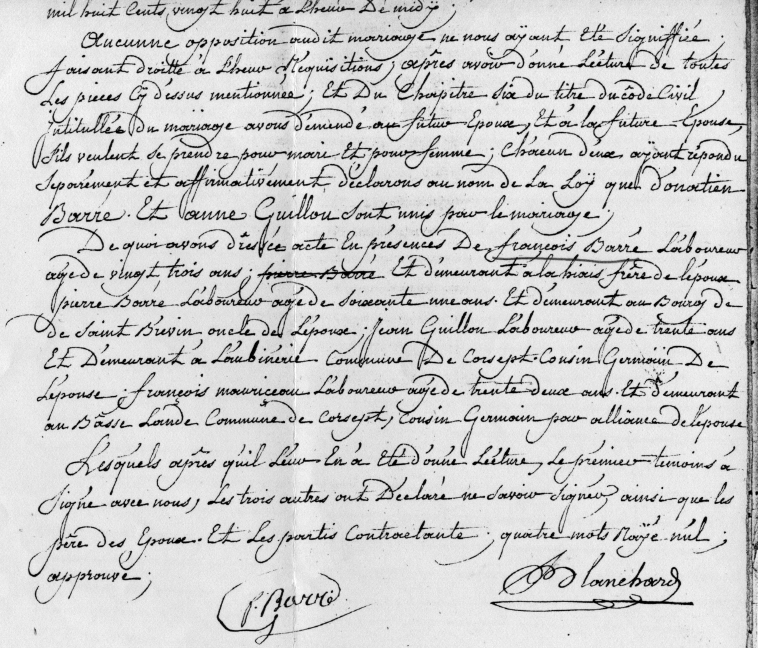 mil huit Cents vingt huit à Lheur De midy;
Aucunne opposition audit mariage ne nous ayant Eté Signiffiée;
faisant droitte à Lheur Réquisitions; après avoir donné Lécture de toutes
Les pieces Cy dessus mentionnée; Et Du Chapitre Six du titre du côde Civil
intitullée Du mariage avons démendé au futur Epoux, Et à la future Epouse,
S'ils veulent se prendre pour mari Et pour femme; Chacun deux ayant répondu
Séparément et affirmativement, déclarons au nom de La Loÿ que donatien
Barre. Et anne Guillou sont unis par le mariage;
De quoi avons dréssée acte En présences De françois Barré Laboureur
agé de vingt trois ans; pierre Barré Et démeurant à la biais, frère de lépoux
pierre Barré Laboureur agé de soixante une ans. Et démeurant au Bourg de
de Saint Brévin oncle de Lépoux; Jean Guillou Laboureur agé de trente ans
Et Démeurant à Laubinérie Commune De Corsept. Cousin Germain De
Lépouse; françois mauriceau Laboureur agé de trente deux ans. Et démeurant
au Bâsse Lande Commune de Corsept, Cousin Germain par alliance de lépouse
Lesquels après quil Leur En à Eté donné Lécture, Le premier témoins à
Signé avec nous, Les trois autres ont Déclaré ne savoir Signer, ainsi que les
père des Epoux. Et Les partis Contractante; quatre mots Rayé nul;
approuvé;
f. Barré
Blanchard